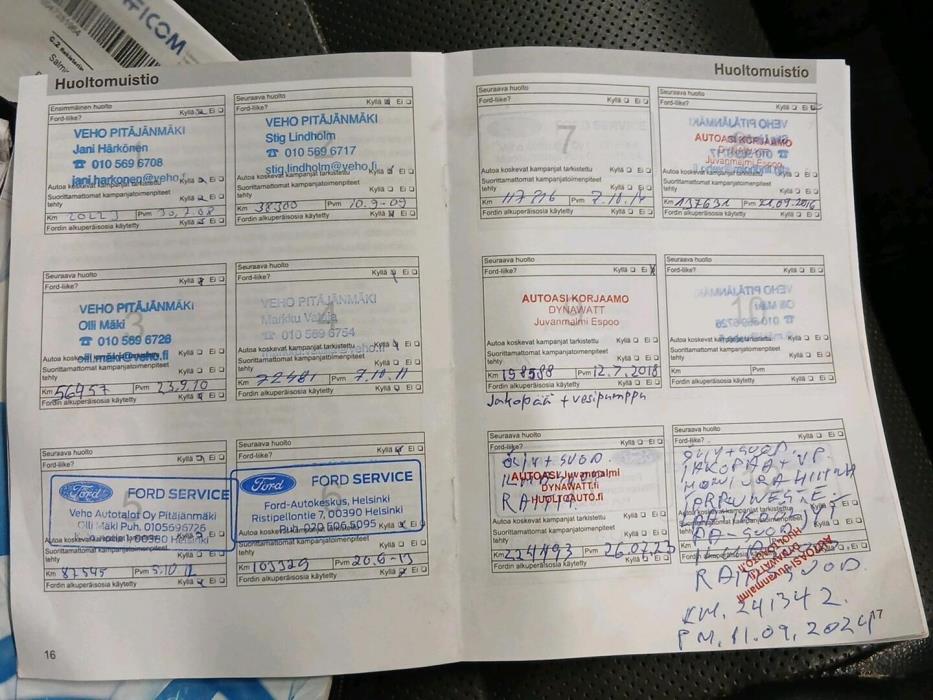 Huoltomuistio
Ensimmäinen huolto
Ford-liike? Kyllä Ei
VEHO PITÄJÄNMÄKI
Jani Härkönen
☎ 010 569 6708
jani.harkonen@veho.
Autoa koskevat kampanjat tarkistettu
Suorittamattomat kampanjatoimenpiteet
tehty
Km Pvm
Fordin alkuperäisosia käytetty
Seuraava huolto
Ford-liike? Kyllä Ei
VEHO PITÄJÄNMÄKI
Stig Lindholm
☎ 010 569 6717
stig.lindholm@veho.fi
Autoa koskevat kampanjat tarkistettu
Suorittamattomat kampanjatoimenpiteet
tehty
Km 38300 Pvm 10.9-09
Fordin alkuperäisosia käytetty
Seuraava huolto
Ford-liike? Kyllä Ei
VEHO PITÄJÄNMÄKI
Olli Mäki
☎ 010 569 6728
olli.mäki@veho.fi
Autoa koskevat kampanjat tarkistettu
Suorittamattomat kampanjatoimenpiteet
tehty
Km 56957 Pvm 23.9.10
Fordin alkuperäisosia käytetty
Seuraava huolto
Ford-liike? Kyllä Ei
4
VEHO PITÄJÄNMÄKI
Markku
☎ 010 569 6754
Autoa koskevat kampanjat tarkistettu
Suorittamattomat kampanjatoimenpiteet
tehty
Km 72481 Pvm 7.10.11
Fordin alkuperäisosia käytetty
Seuraava huolto
Ford-liike? Kyllä Ei
Ford FORD SERVICE
Veho Autotalo Oy Pitäjänmäki
Olli Mäki Puh. 0105696728
00380 Helsinki
Suorittamattomat kampanjatoimenpiteet
tehty
Km 87545 Pvm 5.10.12
Fordin alkuperäisosia käytetty Kyllä Ei
Seuraava huolto
Ford-liike? Kyllä Ei
Ford FORD SERVICE
Ford-Autokeskus, Helsinki
Ristipellontie 7, 00390 Helsinki
Puh. 020 506 5095
Autoa koskevat kampanjat tarkistettu
Suorittamattomat kampanjatoimenpiteet
tehty
Km 103329 Pvm 20.6-13
Fordin alkuperäisosia käytetty Kyllä Ei
16
Huoltomuistio
Seuraava huolto
Ford-liike? Kyllä Ei
7
Autoa koskevat kampanjat tarkistettu
Suorittamattomat kampanjatoimenpiteet
tehty
Km 117716 Pvm 7.10.14
Fordin alkuperäisosia käytetty
Seuraava huolto
Ford-liike? Kyllä Ei
AUTOASI KORJAAMO
DYNAWATT
Juvanmalmi Espoo
Autoa koskevat kampanjat tarkistettu
Suorittamattomat kampanjatoimenpiteet
tehty
Km 137631 Pvm 21.09.2016
Fordin alkuperäisosia käytetty
Seuraava huolto
Ford-liike? Kyllä Ei
AUTOASI KORJAAMO
DYNAWATT
Juvanmalmi Espoo
Autoa koskevat kampanjat tarkistettu
Suorittamattomat kampanjatoimenpiteet
tehty
Km 198588 Pvm 12.7.2018
Fordin alkuperäisosia käytetty
Jakopää + vesipumppu
Seuraava huolto
Ford-liike? Kyllä Ei
10
Autoa koskevat kampanjat tarkistettu
Suorittamattomat kampanjatoimenpiteet
tehty
Km Pvm
Fordin alkuperäisosia käytetty
Seuraava huolto
Ford-liike? Kyllä Ei
ÖLJY + SUOD.
AUTOASI Juvanmalmi
DYNAWATT.fi
HUOLTOAUTO.fi
Autoa koskevat kampanjat tarkistettu
Suorittamattomat kampanjatoimenpiteet
tehty
Km 224493 Pvm
Fordin alkuperäisosia käytetty
Seuraava huolto
Ford-liike? Kyllä Ei
ÖLJY + SUOD.
JAKOPÄÄ + VP.
MONIURAHIHNA
JARRUNESTE.
AUTOASI Juvanmalmi
RAITIS SUOD.
KM. 241342.
PM. 11.09.2024
17